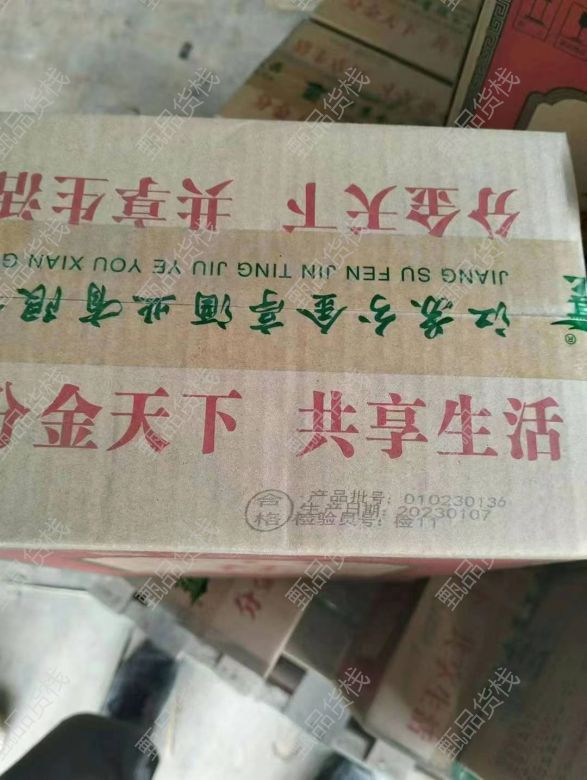 分金天下 共享生活
JIANG SU FEN JIN TING JIU YE YOU XIAN G
江苏分金亭酒业有限
®
分金天下 共享生活
合格
产品批号: 010230136
生产日期: 20230107
检验员号: 检11
甄品货栈